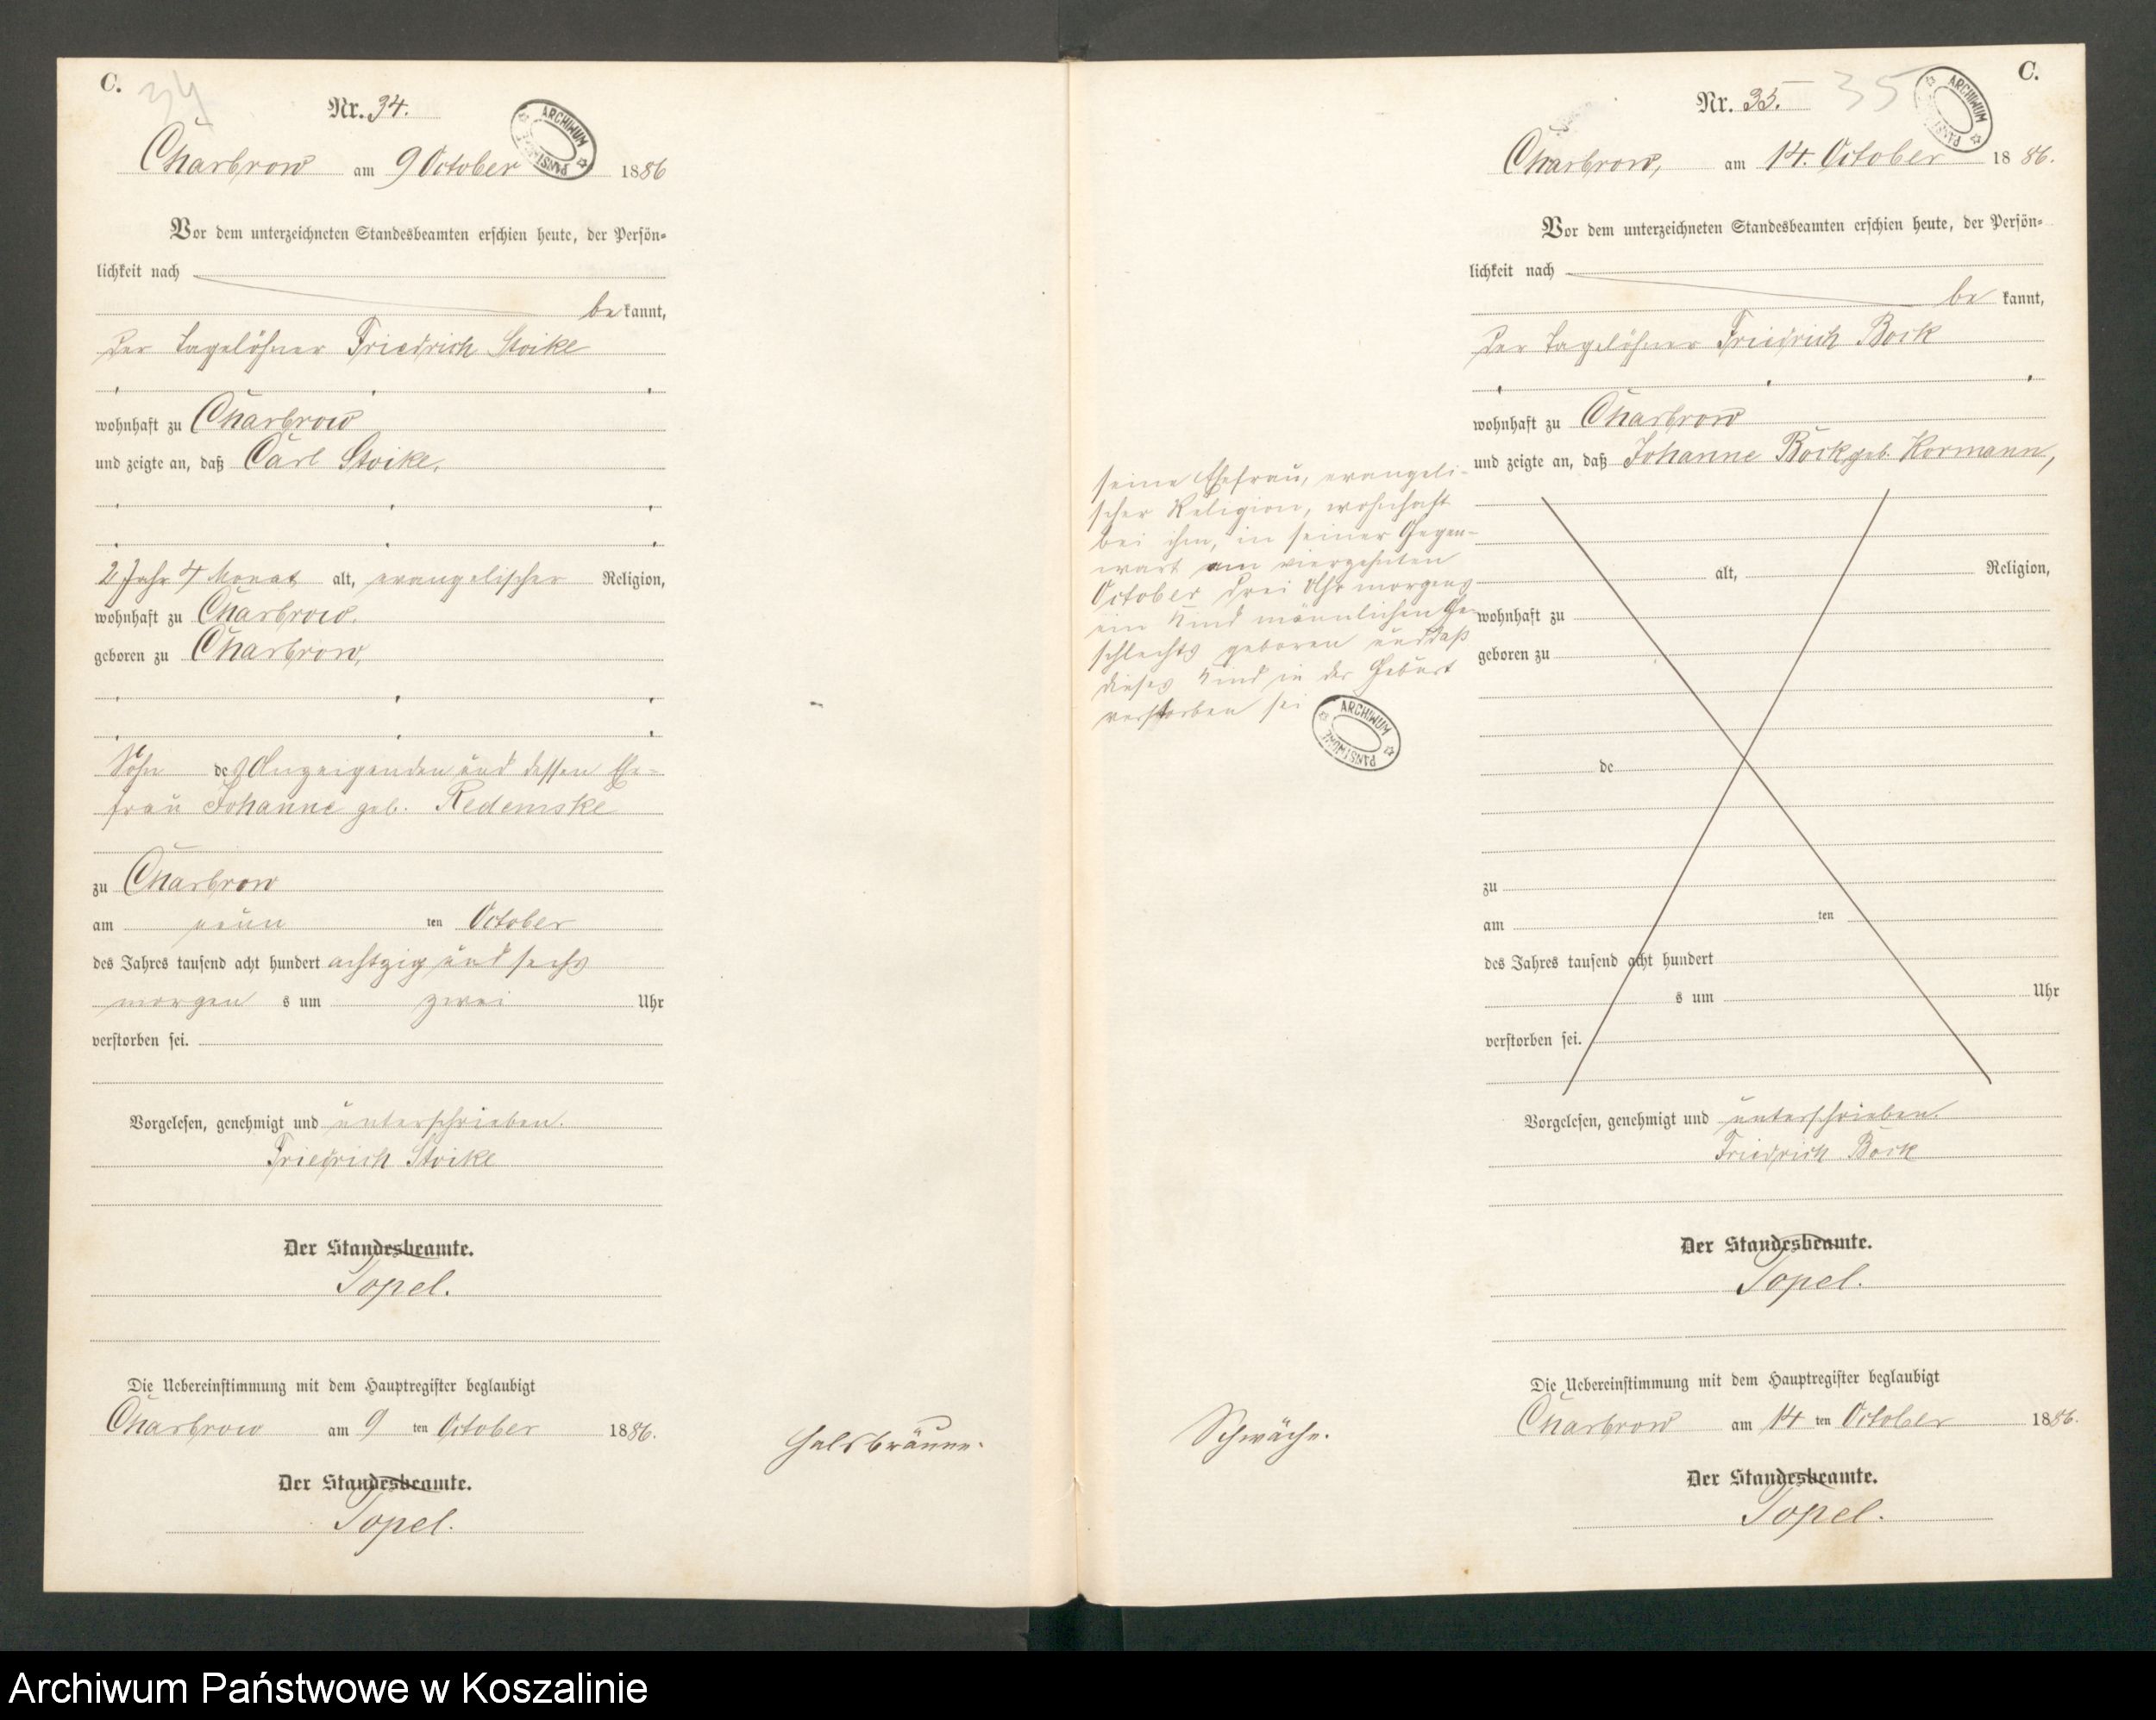 C.
34
Nr. 34.
Charbrow am 9 October 1886
Vor dem unterzeichneten Standesbeamten erschien heute, der Persön-
lichkeit nach
be kannt,
der Tagelöhner Friedrich Stoike
wohnhaft zu Charbrow
und zeigte an, daß Carl Stoike,
2 Jahr 4 Monat alt, evangelischer Religion,
wohnhaft zu Charbrow.
geboren zu Charbrow,
Sohn des Anzeigenden und dessen Ehe-
frau Johanne geb. Redemske
zu Charbrow
am neun ten October
des Jahres tausend acht hundert achtzig und sechs
morgen s um zwei Uhr
verstorben sei.
Vorgelesen, genehmigt und unterschrieben.
Friedrich Stoike
Der Standesbeamte.
Topel.
Die Uebereinstimmung mit dem Hauptregister beglaubigt
Charbrow am 9 ten October 1886.
Der Standesbeamte.
Topel.
Halsbräune.
ARCHIWUM PAŃSTWOWE
C.
35
Nr. 35.
Charbrow, am 14. October 1886.
Vor dem unterzeichneten Standesbeamten erschien heute, der Persön-
lichkeit nach
be kannt,
der Tagelöhner Friedrich Bock
wohnhaft zu Charbrow
und zeigte an, daß Johanne Bock geb. Kormann,
seine Ehefrau, evangeli-
scher Religion, wohnhaft
bei ihm, in seiner Gegen-
wart am vierzehnten
October drei Uhr morgens
ein Kind männlichen Ge-
schlechts geboren und daß
dieses Kind in der Geburt
verstorben sei
ARCHIWUM PAŃSTWOWE
alt, Religion,
wohnhaft zu
geboren zu
de
zu
am ten
des Jahres tausend acht hundert
s um Uhr
verstorben sei.
Vorgelesen, genehmigt und unterschrieben.
Friedrich Bock
Der Standesbeamte.
Topel.
Die Uebereinstimmung mit dem Hauptregister beglaubigt
Charbrow am 14 ten October 1886.
Der Standesbeamte.
Topel.
Schwäche.
ARCHIWUM PAŃSTWOWE
Archiwum Państwowe w Koszalinie